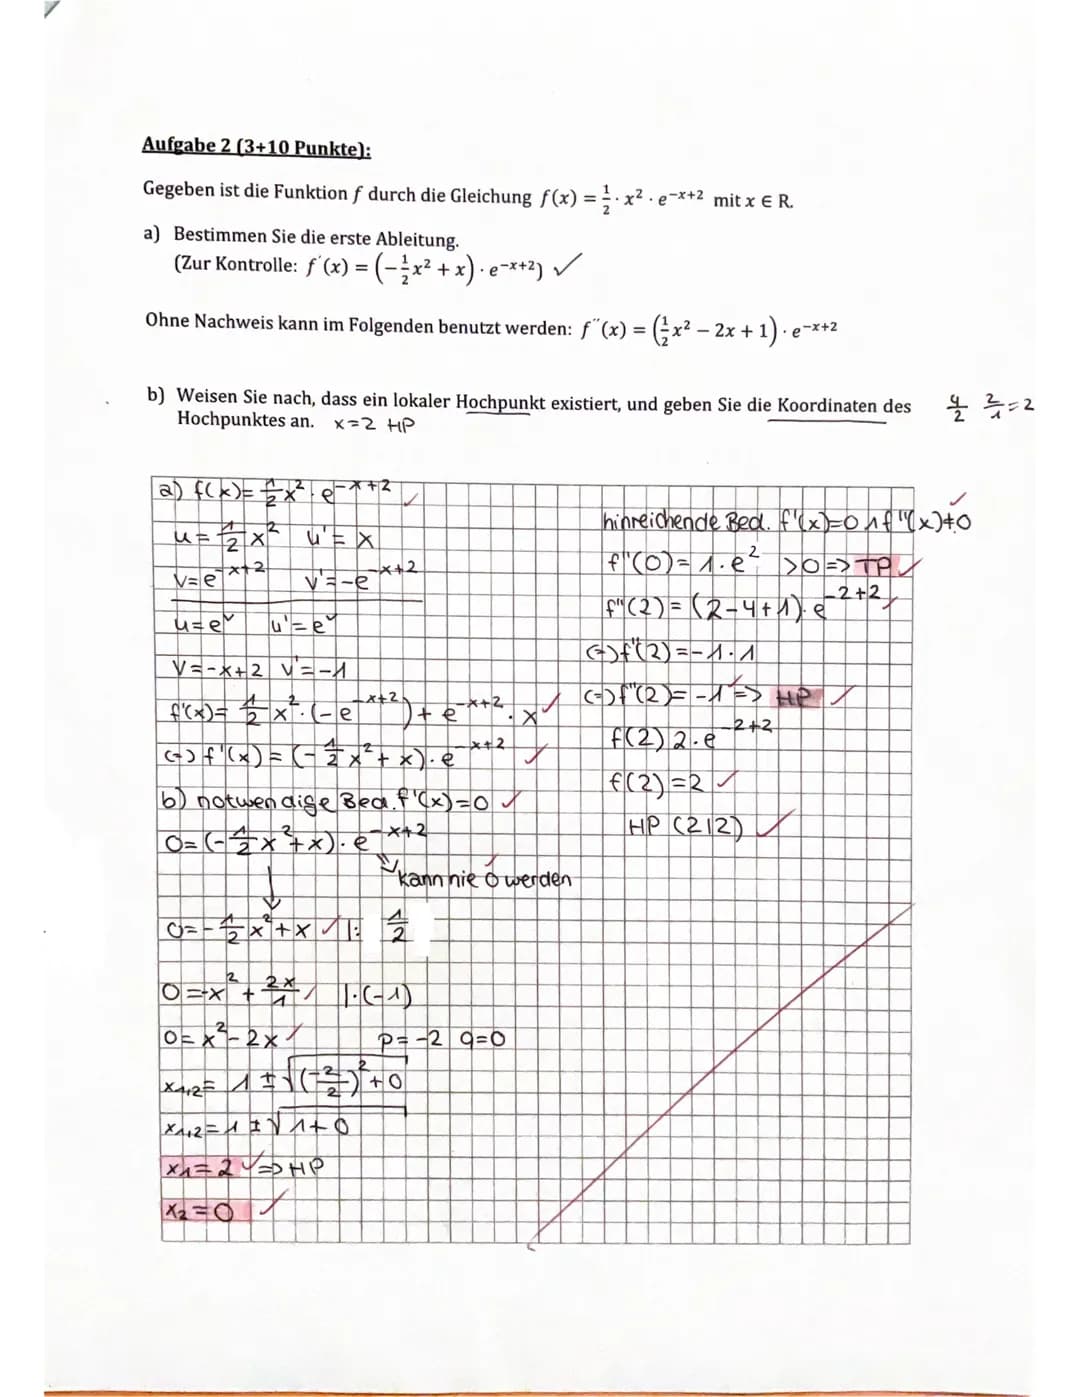 Aufgabe 2 (3+10 Punkte):
Gegeben ist die Funktion f durch die Gleichung f(x) = 1/2 · x² · e^(-x+2) mit x ∈ R.
a) Bestimmen Sie die erste Ableitung.
(Zur Kontrolle: f´(x) = (-1/2 x² + x) · e^(-x+2)) ✓
Ohne Nachweis kann im Folgenden benutzt werden: f´´(x) = (1/2 x² − 2x + 1) · e^(-x+2)
b) Weisen Sie nach, dass ein lokaler Hochpunkt existiert, und geben Sie die Koordinaten des
Hochpunktes an. x=2 HP
4/2 2/1=2
a) f(x)= 1/2 x² · e^(-x+2) ✓
u = 1/2 x² u' = x
v = e^(-x+2) v' = -e^(-x+2)
u=e^v u'=e^v
v=-x+2 v'=-1
f'(x)= 1/2 x² · (-e^(-x+2)) + e^(-x+2) · x ✓
(=) f'(x) = (-1/2 x² + x) · e^(-x+2) ✓
b) notwendige Bed. f'(x)=0 ✓
0= (-1/2 x² + x) · e^(-x+2)
kann nie 0 werden
0= -1/2 x² + x ✓ |: 1/2
0 = -x² + 2x/1 |·(-1)
0= x² - 2x ✓ p= -2 q=0
x1,2= 1 ± √((-2/2)² + 0)
x1,2= 1 ± √1+0
x1=2 ✓ => HP
x2=0 ✓
hinreichende Bed. f'(x)=0 ∧ f''(x)≠0 ✓
f''(0)= 1 · e² >0 => TP ✓
f''(2)= (2-4+1) · e^(-2+2) ✓
(=) f''(2) = -1 · 1
(=) f''(2)= -1 => HP ✓
f(2) 2 · e^(-2+2)
f(2)=2 ✓
HP (2|2) ✓